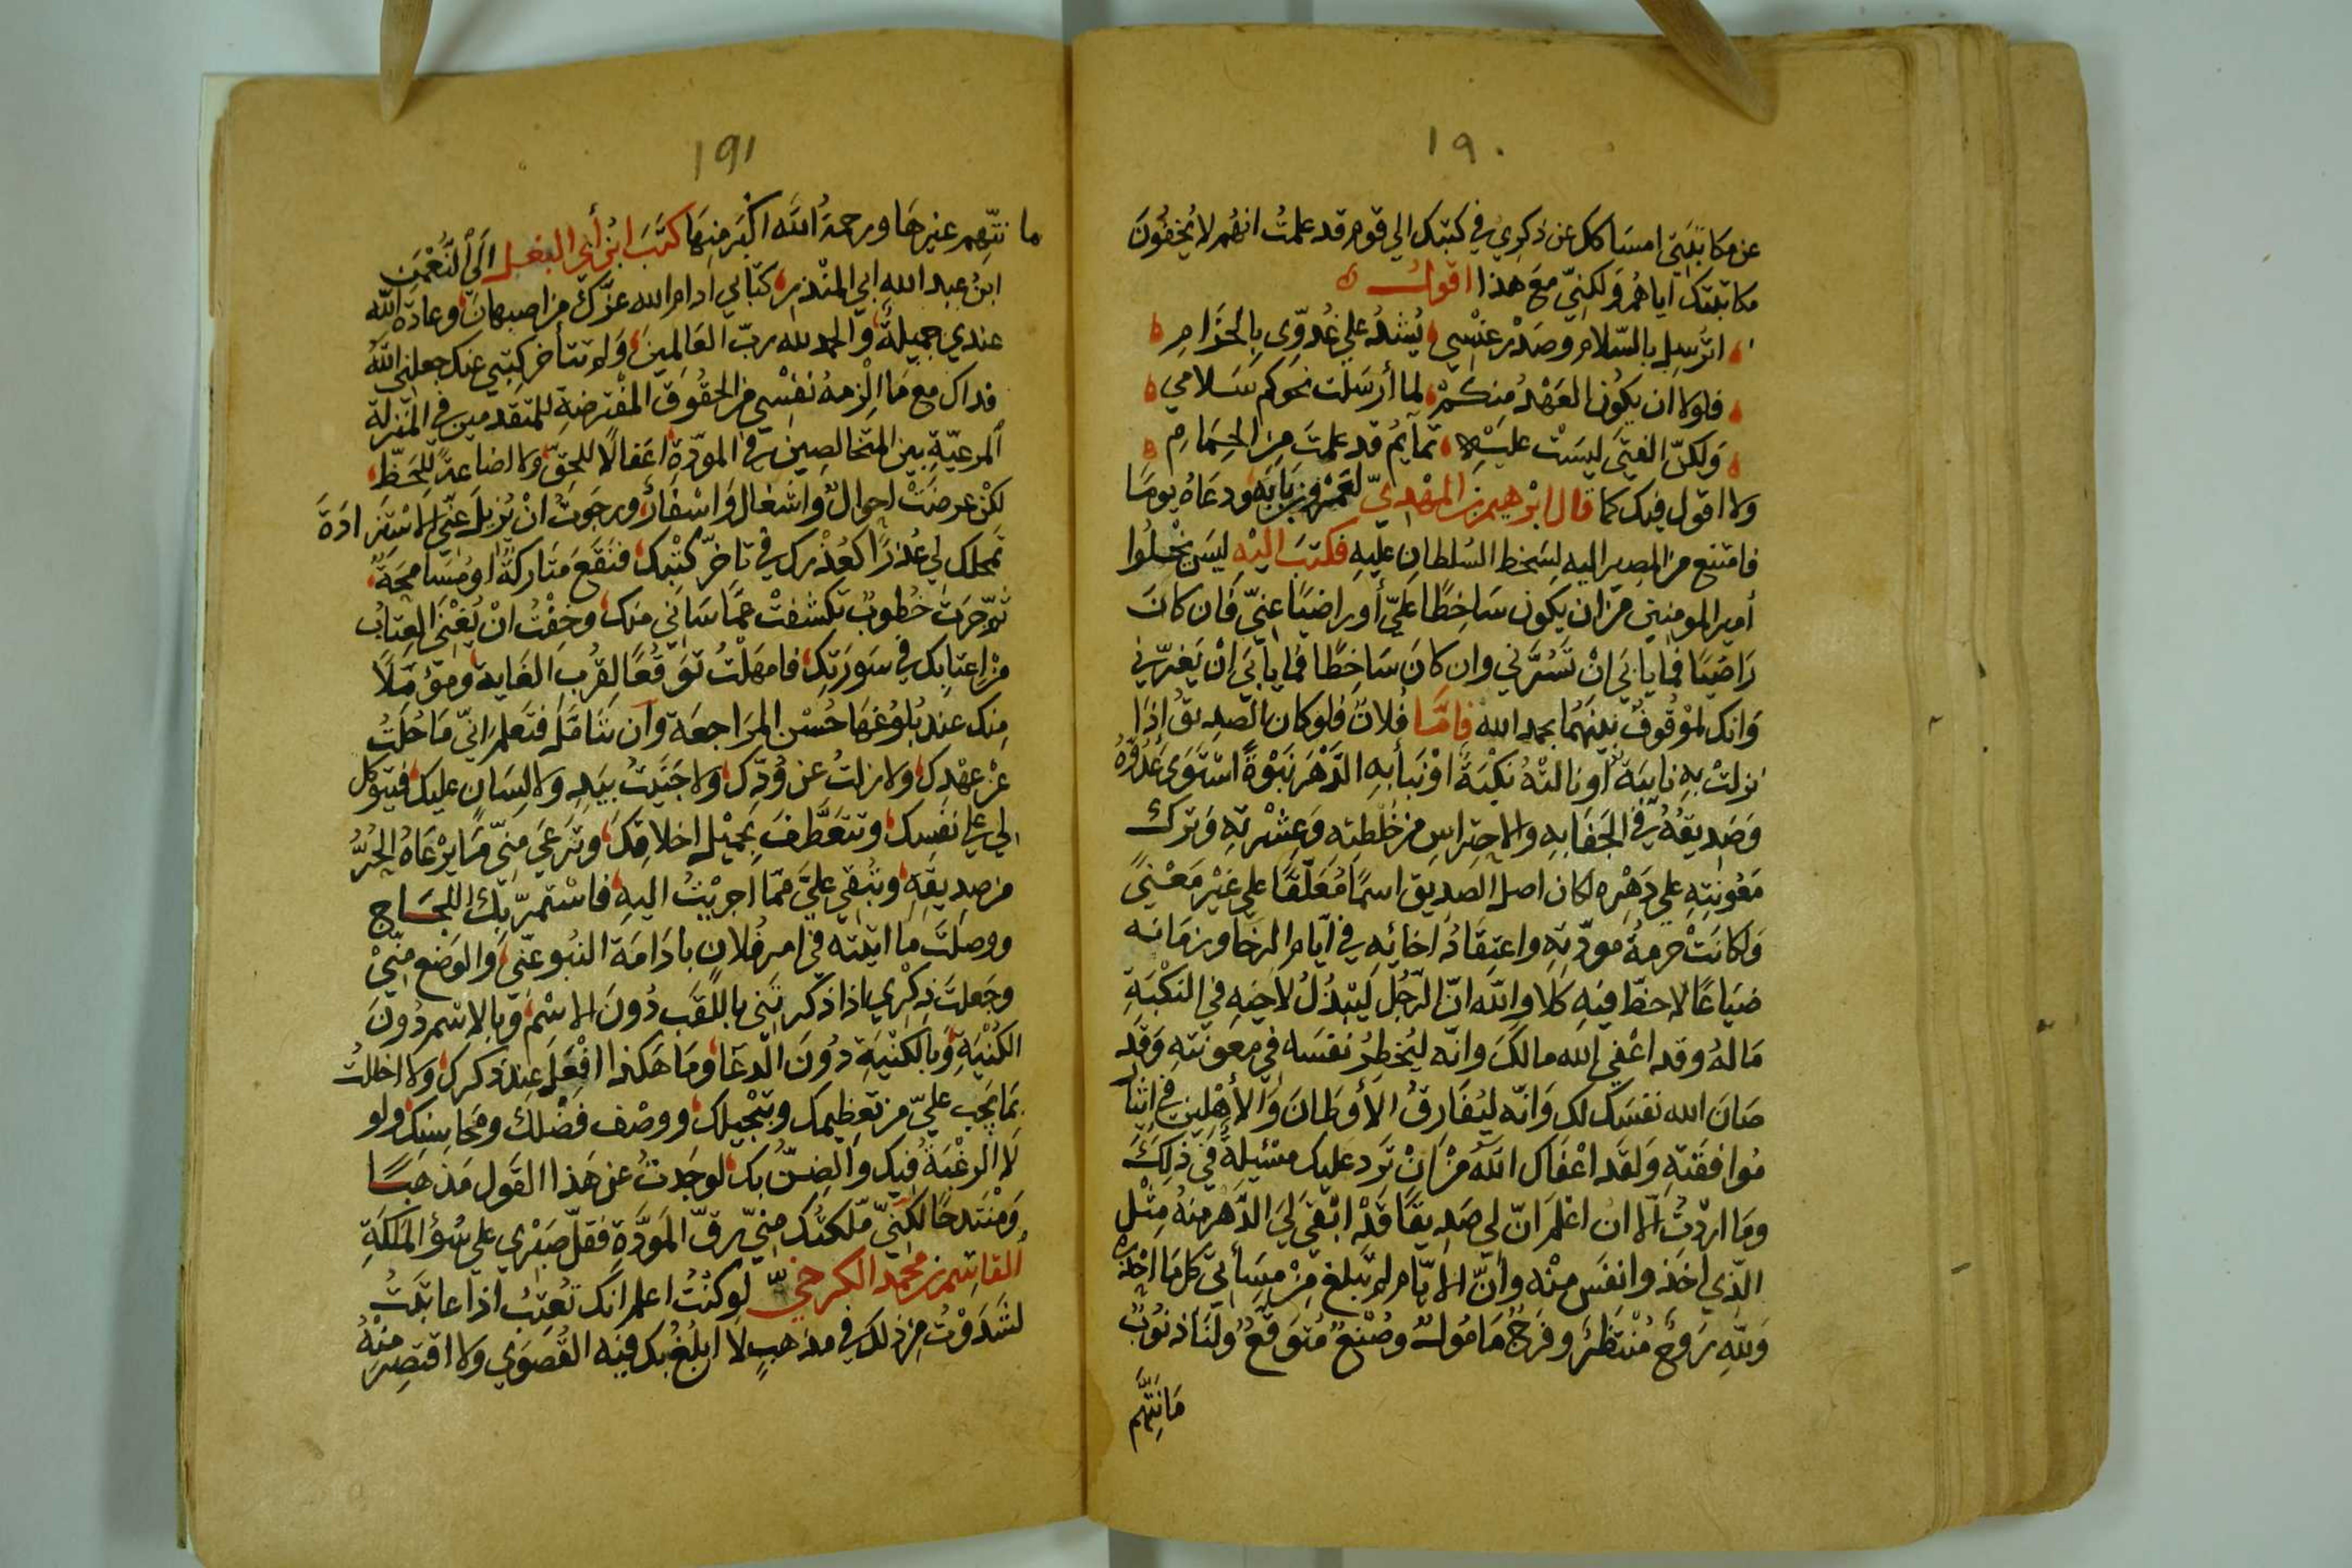 ١٩٠
عن مكاتبتي امساكك عن ذكري في كتبك الي قوم قد علمتُ انهُم لا يُخفُونَ
مكاتبتك اياهُم وَلكِنّي مَع هذا اقولُ
اترُسِل بالسّلام وصَدْر عنْسِي يُشَدُّ علي غُدوِّي بالحَزَامِ
فلولا ان يكُون العَهْدُ مِنكمُ لما أرسَلت نحوكم سَلامي
وَلكنّ الفتيَ ليسَتْ عليْهِ تمايمُ قد علمتَ مِنَ الحِمَامِ
ولا اقول فيك كما قال ابرهيم بن المهْديّ لعَمْرو بن بَابَه ودعَاهُ يومًا
فامتنع من المصِير اليه لسَخط السُلطانِ عليهِ فكتبَ اليْه ليسَ يخْلُوا
أمير المومنين من ان يكون سَاخِطًا عَليّ أو راضيًا عنيّ فَان كانَ
رَاضيًا فما يابيَ انْ تَسُرَّني وان كانَ سَاخِطًا فما يأبيَ انْ يَغرّني
وَانك لموْقوفٌ بينهُما بحمد الله فامَّا فُلانٌ فلو كان الصديقُ إذَا
نزلتْ بهِ نايبَة أو نالتْهُ نكْبَةً اوْ نبَأ بهِ الدّهْر نبْوةً استوَى عَدُوّهُ
وَصَديقهُ في الجَفَا بهِ والاحتِراسِ من خلْطته وَعِشْرتهِ وَتركَ
مَعُونتِهِ علي دَهْره لكان اصل الصَديق اسمًا مُعَلّقًا علي غيْر مَعْنيً
وَلكانَتْ حرمةُ مودّتهِ واعتِقَادُ اخائهِ في أيّام الرخَا وزمَانه
ضيَاعًا لا حظّ فيه كَلا والله انّ الرجُل ليَبْذُلُ لاخيهِ في النكْبَةِ
مَالهُ وقد اغْني الله مالكَ وانه ليُخطِرُ نفسَه في معونتهِ وَقد
صَانَ الله نفسَك لك وَانّه ليُفَارقُ الأوْطَانَ وَالأهْلِين في ايثار
مُوافقَتهِ وَلقد اعْفَاك الله مِنْ انْ تَرد عَليك مسْئلةً في ذلِكَ
ومَا اردْتُ الا ان اعْلمَ انّ لي صَديقًا قَدْ ابْقيَ ليَ الدّهْر منهُ مِثْل
الّذي اخَذ وانفَس مِنْه وأنّ الايّام لم تبلغ مِنْ مسَأتيّ كل مَا احْذَرهُ
وَللهِ رَوحٌ مُنْتظَرٌ وفرَجٌ مَامُولٌ وصُنعٌ مُتوَقّعٌ وَلنَا ذنوُبٌ
مَا نَتّهِم
١٩١
ما نتّهم غيرهَا ورحمةُ الله اكبَر مِنهَا كتَبَ ابْنُ أبي البغل الَي النُّعْمَن
ابن عبد الله ابي المنْذر كتابي ادام الله عزّك من اصبهانَ وعادَة الله
عندي جميلةٌ والحمد لله ربّ العَالمينَ وَلم تتأخر كتبي عنك جعلني الله
فداك مع مَا الْزمهُ نفسْي من الحقُوق المفْترضةِ للمتقدمين في المنزلة
المرعيّةِ بين المتخَالصِين في المودّة اغفالًا للحَقّ ولا اضاعةً للحَظّ
لكنْ عرضَتْ احوالٌ وَاشغالٌ وَاسْفارٌ ورجَوتُ انْ يُزيلَ عنّي الاسْتزادَة
تمحلك لي عُذرًا كعُذْرك في تاخّر كتْبك فتقَع مَتاركةٌ اوْ مُسَامحَةٌ
ثم جَرتْ خطُوبٌ تكشفتْ عمَّا سَاني منك وخفْتُ انْ يُغنيَ العِتابُ
مِنْ اعتابك في سَورَتِك فامهَلْتُ توَقعًا لقُربِ الغَاية ومَؤمّلًا
مِنك عند بُلوغهَا حُسْن المرَاجعَة وآن تتَامّلَ فتعلم انّي مَا حُلتُ
عنْ عهْدِك ولا زلتُ عن وُدّك ولا جنَيتُ بيَدٍ ولا لِسَانٍ عليك فيتوكل
لي علي نفسِك وتتعَطّف بجميْل اخلاقكَ وترعَي منّي مَا يرْعَاهُ الحُرُّ
من صديقهِ وتُبقي عليَّ ممّا اجريْتُ اليهِ فاستمرّ بكَ اللجَاج
ووصلتَ ما اتيته في امر فُلانٍ بادَامَة النبُو عنّي وَالوضع منّي
وجَعلتَ ذِكْري اذا ذكرتَني باللقَب دُونَ الاسْم وبالاسْم دُونَ
الكُنْيَةِ وَبالكنْيَةِ دُونَ الدعَا ومَا هَكذا افْعَل عِندَ ذكرك ولا اخللتُ
بمَا يجب عليّ من تعظيمك وتبْجيلك ووصْف فضْلك ومَحاسِنِك ولو
لَا الرغْبَةُ فيك والضِنُّ بك لوجَدتُ عن هَذا القول مَذهَبًا
وَمْنتَدحًا لكنّي ملّكتُك مِنيّ رِقّ المَوَدّة فقلّ صَبْري علي سُوء المَلكَةِ
القاسِم بن محمد الكرخيّ لو كنْتُ اعلم انك تُعتِبُ اذا عاتبْتُ
لشَدَوْتُ مِن ذلك في مذهبٍ لا ابلُغُ بك فيْه القُصوَي ولا اقتصِر مِنْهُ